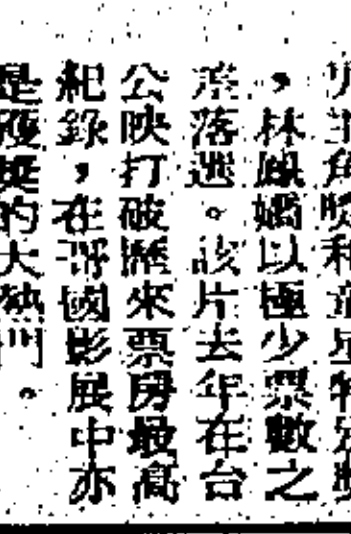 男主角獎和童星特別獎
，林鳳嬌以極少票數之
差落選。該片去年在台
公映打破歷來票房最高
紀錄，在各國影展中亦
是獲獎的大熱門。